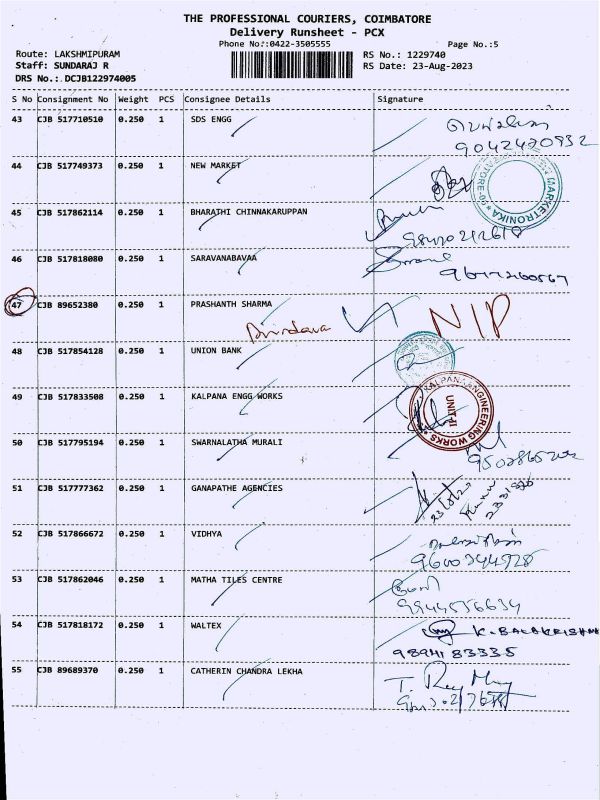 THE PROFESSIONAL COURIERS, COIMBATORE
Delivery Runsheet - PCX
Phone No.:0422-3505555 Page No.:5
Route: LAKSHMIPURAM RS No.: 1229740
Staff: SUNDARAJ R RS Date: 23-Aug-2023
DRS No.: DCJB122974005
S No Consignment No Weight PCS Consignee Details Signature
43 CJB 517710510 0.250 1 SDS ENGG
9042420932
44 CJB 517749373 0.250 1 NEW MARKET
MARKETRONIKA
45 CJB 517862114 0.250 1 BHARATHI CHINNAKARUPPAN
46 CJB 517818080 0.250 1 SARAVANABAVAA
47 CJB 89652380 0.250 1 PRASHANTH SHARMA
NIP
48 CJB 517854128 0.250 1 UNION BANK
49 CJB 517833508 0.250 1 KALPANA ENGG WORKS
KALPANA ENGINEERING WORKS
UNIT II
50 CJB 517795194 0.250 1 SWARNALATHA MURALI
51 CJB 517777362 0.250 1 GANAPATHE AGENCIES
52 CJB 517866672 0.250 1 VIDHYA
9600344928
53 CJB 517862046 0.250 1 MATHA TILES CENTRE
9944556634
54 CJB 517818172 0.250 1 WALTEX
K. BALAKRISHNA
9894183335
55 CJB 89689370 0.250 1 CATHERIN CHANDRA LEKHA